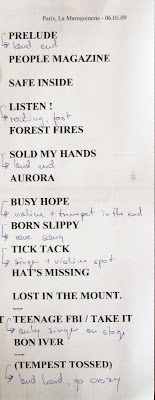 Paris, La Maroquinerie - 06.05.09
PRELUDE
loud end
PEOPLE MAGAZINE
SAFE INSIDE
LISTEN !
, fast
FOREST FIRES
SOLD MY HANDS
loud end
AURORA
BUSY HOPE
violin + trumpet in the end
BORN SLIPPY
rave song
TICK TACK
singer + violin spot
HAT'S MISSING
LOST IN THE MOUNT.
---
T TEENAGE FBI / TAKE IT
only singer on stage
BON IVER
---
(TEMPEST TOSSED)
loud loud, go crazy